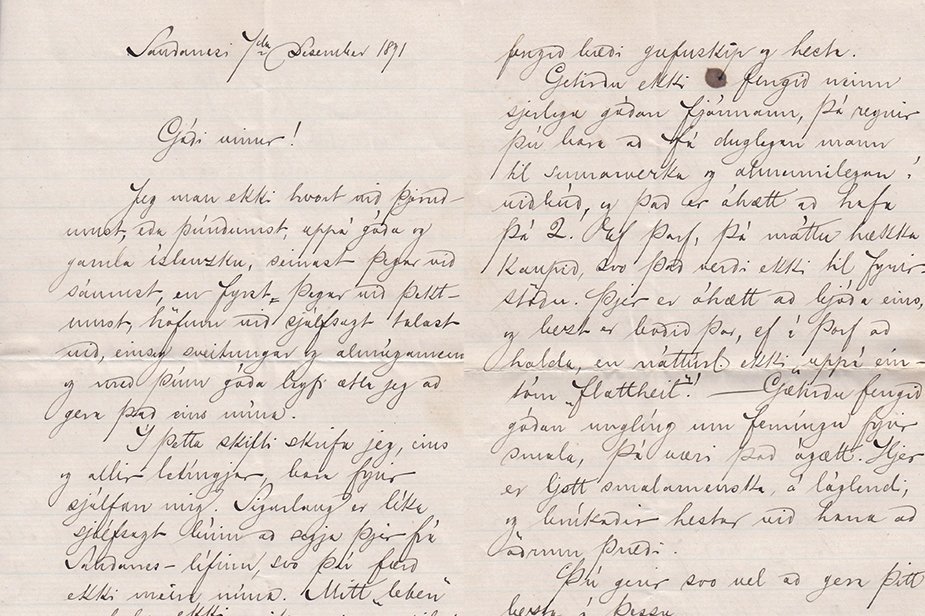 Sandanesi 7da Desember 1891
Góði vinur!
Jeg man ekki hvort við þjerud-
umst, eða þúuðumst, uppá góða og
gamla íslenzku, seinast þegar við
sáumst, en fyrst þegar við þekt-
umst, höfum við sjálfsagt talast
við, einsog sveitungar og almúgamenn
og með þínu góða leyfi ætla jeg að
gera það eins núna.
Í þetta skifti skrifa jeg, eins
og allir letingjar, bara fyrir
sjálfan mig. Sigurlaug er líka
sjálfsagt búin að segja þjer frá
Sandanes-lífinu, svo þú færð
ekki meira núna. Mitt "leben"
ekki
fengið bæði gufuskip og hesta.
Getirðu ekki fengið neinn
sjerlega góðan fjármann, þá reynir
þú bara að fá duglegan mann
til sumarverka og almennilegan í
viðbúð, og það er óhætt að hafa
þá 2. Ef þarf, þá máttu hækka
kaupið, svo það verði ekki til fyrir-
stöðu. Þjer er óhætt að bjóða eins,
og bezt er boðið þar, ef á þarf að
halda, en náttúrl. ekki uppá ein-
tóm "flattheit". — Gætirðu fengið
góðan ungling um fermingu fyrir
smala, þá væri það ágætt. Hjer
er ljett smalamenska, á láglendi,
og brúkaðir hestar við hana að
öðrum þræði.
Þú gerir svo vel að gera þitt
bezta í þessu